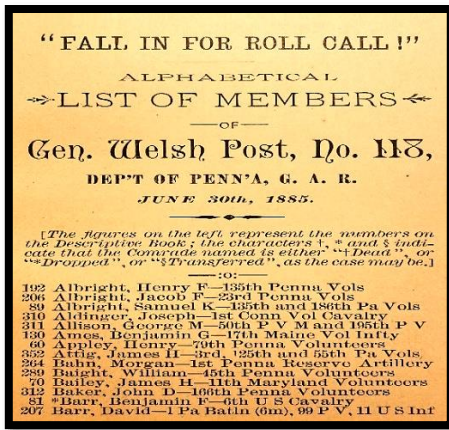 "FALL IN FOR ROLL CALL!"
ALPHABETICAL
LIST OF MEMBERS
—OF—
Gen. Welsh Post, No. 118,
DEP'T OF PENN'A, G. A. R.
JUNE 30th, 1885.
[The figures on the left represent the numbers on
the Descriptive Book; the characters †, * and § indi-
cate that the Comrade named is either "†Dead", or
"*Dropped", or "§Transferred", as the case may be.]
—:o:—
192 Albright, Henry F—135th Penna Vols
206 Albright, Jacob F—23rd Penna Vols
89 Albright, Samuel K—135th and 186th Pa Vols
310 Aldinger, Joseph—1st Conn Vol Cavalry
311 Allison, George M—50th P V M and 195th P V
130 Ames, Benjamin G—17th Maine Vol Infty
60 Appley, Henry—79th Penna Volunteers
352 Attig, James H—3rd, 125th and 55th Pa Vols
264 Bahn, Morgan—1st Penna Reserve Artillery
289 Baight, William—45th Penna Volunteers
70 Bailey, James H—11th Maryland Volunteers
312 Baker, John D—166th Penna Volunteers
81 *Barr, Benjamin F—6th U S Cavalry
207 Barr, David—1 Pa Batln (6m), 99 P V, 11 U S Inf